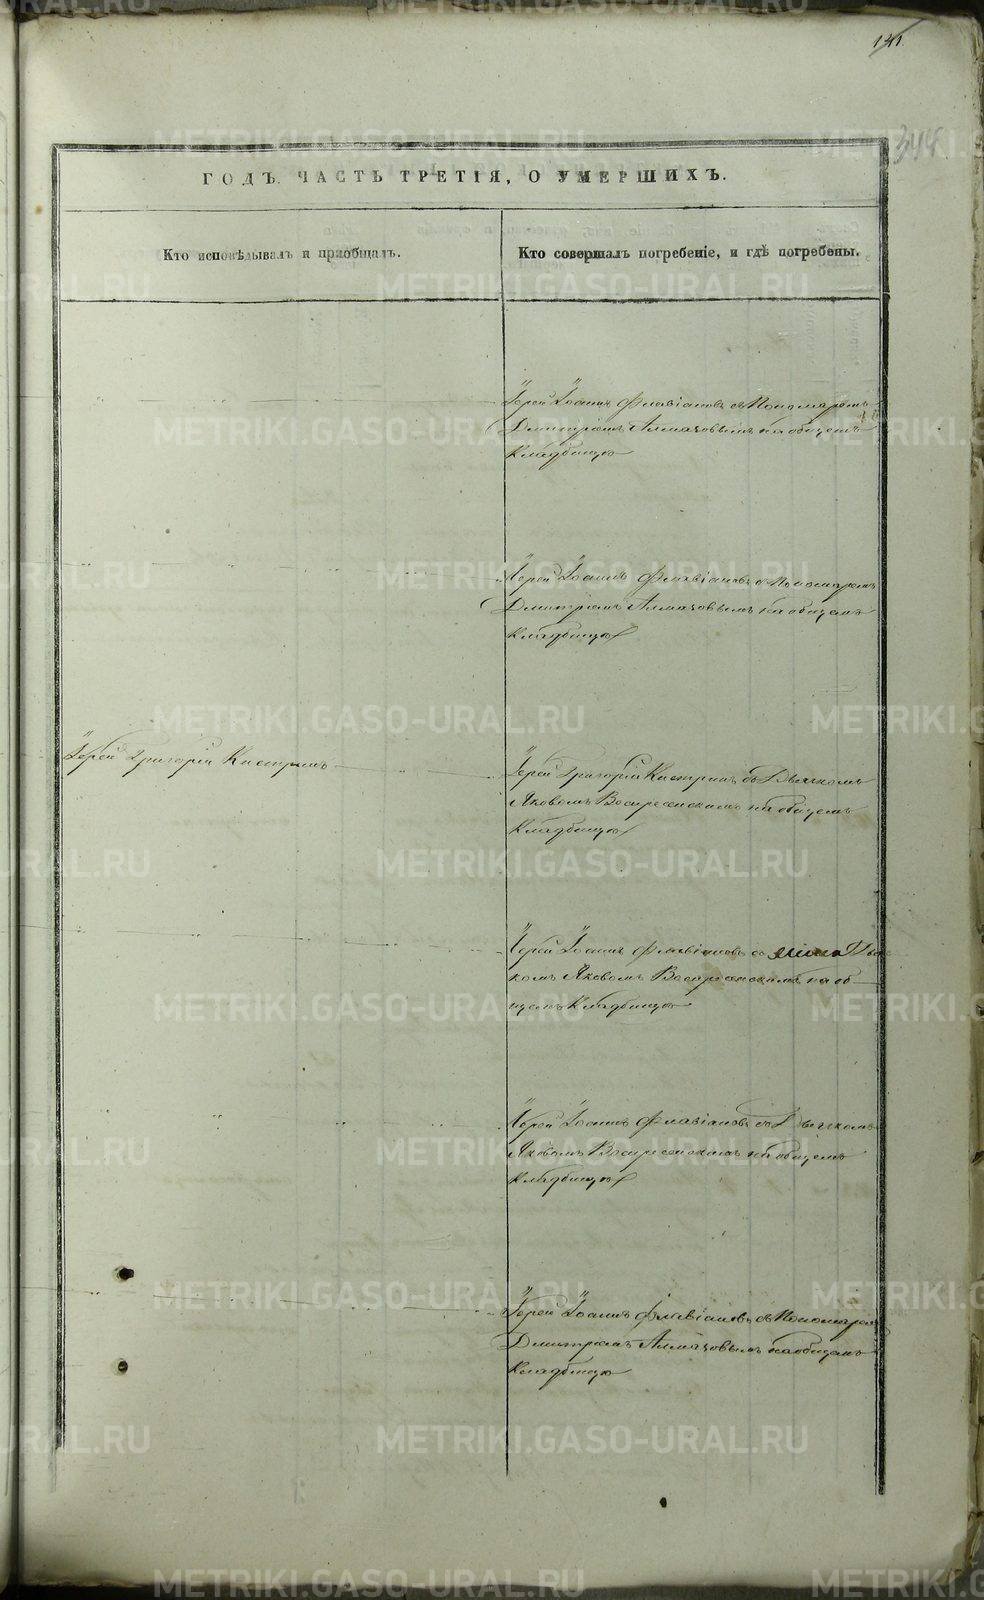 141.
344
ГОДЪ. ЧАСТЬ ТРЕТІЯ, О УМЕРШИХЪ.
Кто исповѣдывалъ и пріобщалъ.
Кто совершалъ погребеніе, и гдѣ погребены.
Іерей Іоаннъ Флавіановъ съ Пономаремъ
Дмитріемъ Алмазовымъ на общемъ
Кладбищѣ
Іерей Іоаннъ Флавіановъ съ Пономаремъ
Дмитріемъ Алмазовымъ на общемъ
Кладбищѣ
Іерей Григорій Кастринъ
Іерей Григорій Кастринъ съ Дьячкомъ
Яковомъ Воскресенскимъ на общемъ
Кладбищѣ
Іерей Іоаннъ Флавіановъ съ Дьяч
комъ Яковомъ Воскресенскимъ на об
щемъ Кладбищѣ
Іерей Іоаннъ Флавіановъ съ Дьячкомъ
Яковомъ Воскресенскимъ на общемъ
Кладбищѣ
Іерей Іоаннъ Флавіановъ съ Пономаремъ
Дмитріемъ Алмазовымъ на общемъ
Кладбищѣ
METRIKI.GASO-URAL.RU